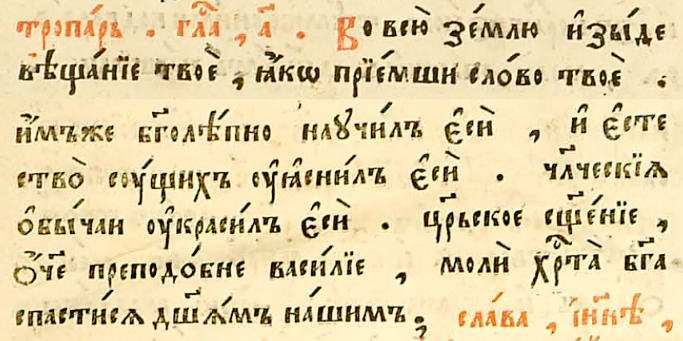 тропа́рь . гла̑ , а҃ . Во всю̀ зе́млю и҆зы́де
вѣща́нїе твоѐ , ꙗ҆́кѡ прїе́мши сло́во твоѐ .
и҆́мъже бг҃олѣ́пно наꙋчи́лъ є҆сѝ , и҆ є҆сте
ство̀ сꙋ́щихъ оу҆ꙗсни́лъ є҆сѝ . чл҃ческїѧ
ѻ҆бы́чаи оу҆краси́лъ є҆сѝ . цр҃ьское сщ҃е́нїе ,
ѻ҆́ч҃е преподо́бне васи́лїе , молѝ хрⷭ҇та̀ бг҃а
спасти́сѧ дш҃ѧ́мъ на́шимъ . сла́ва , і҆ нн҃ѣ ,